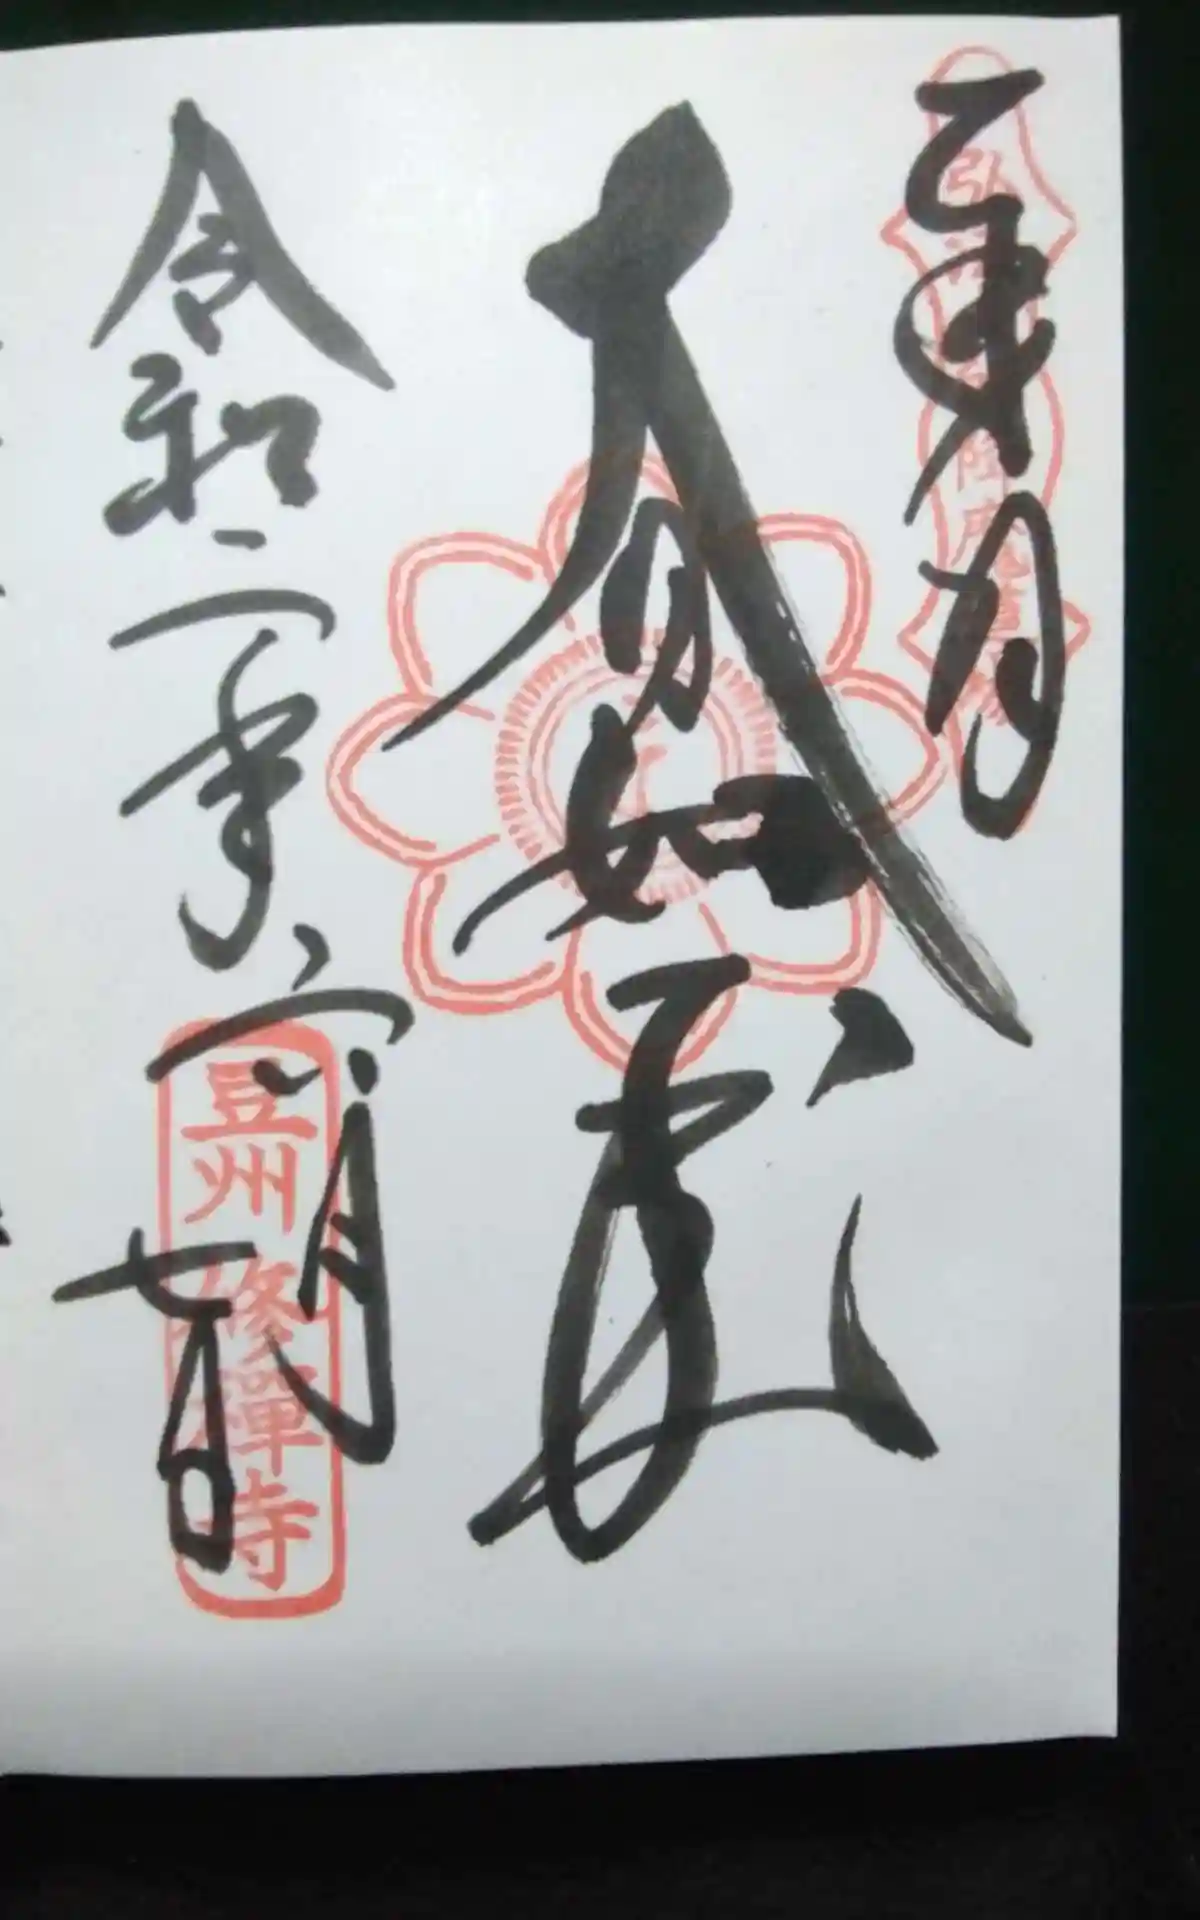 奉拝
大日如来
令和二年六月
七日
豆州
修禅寺